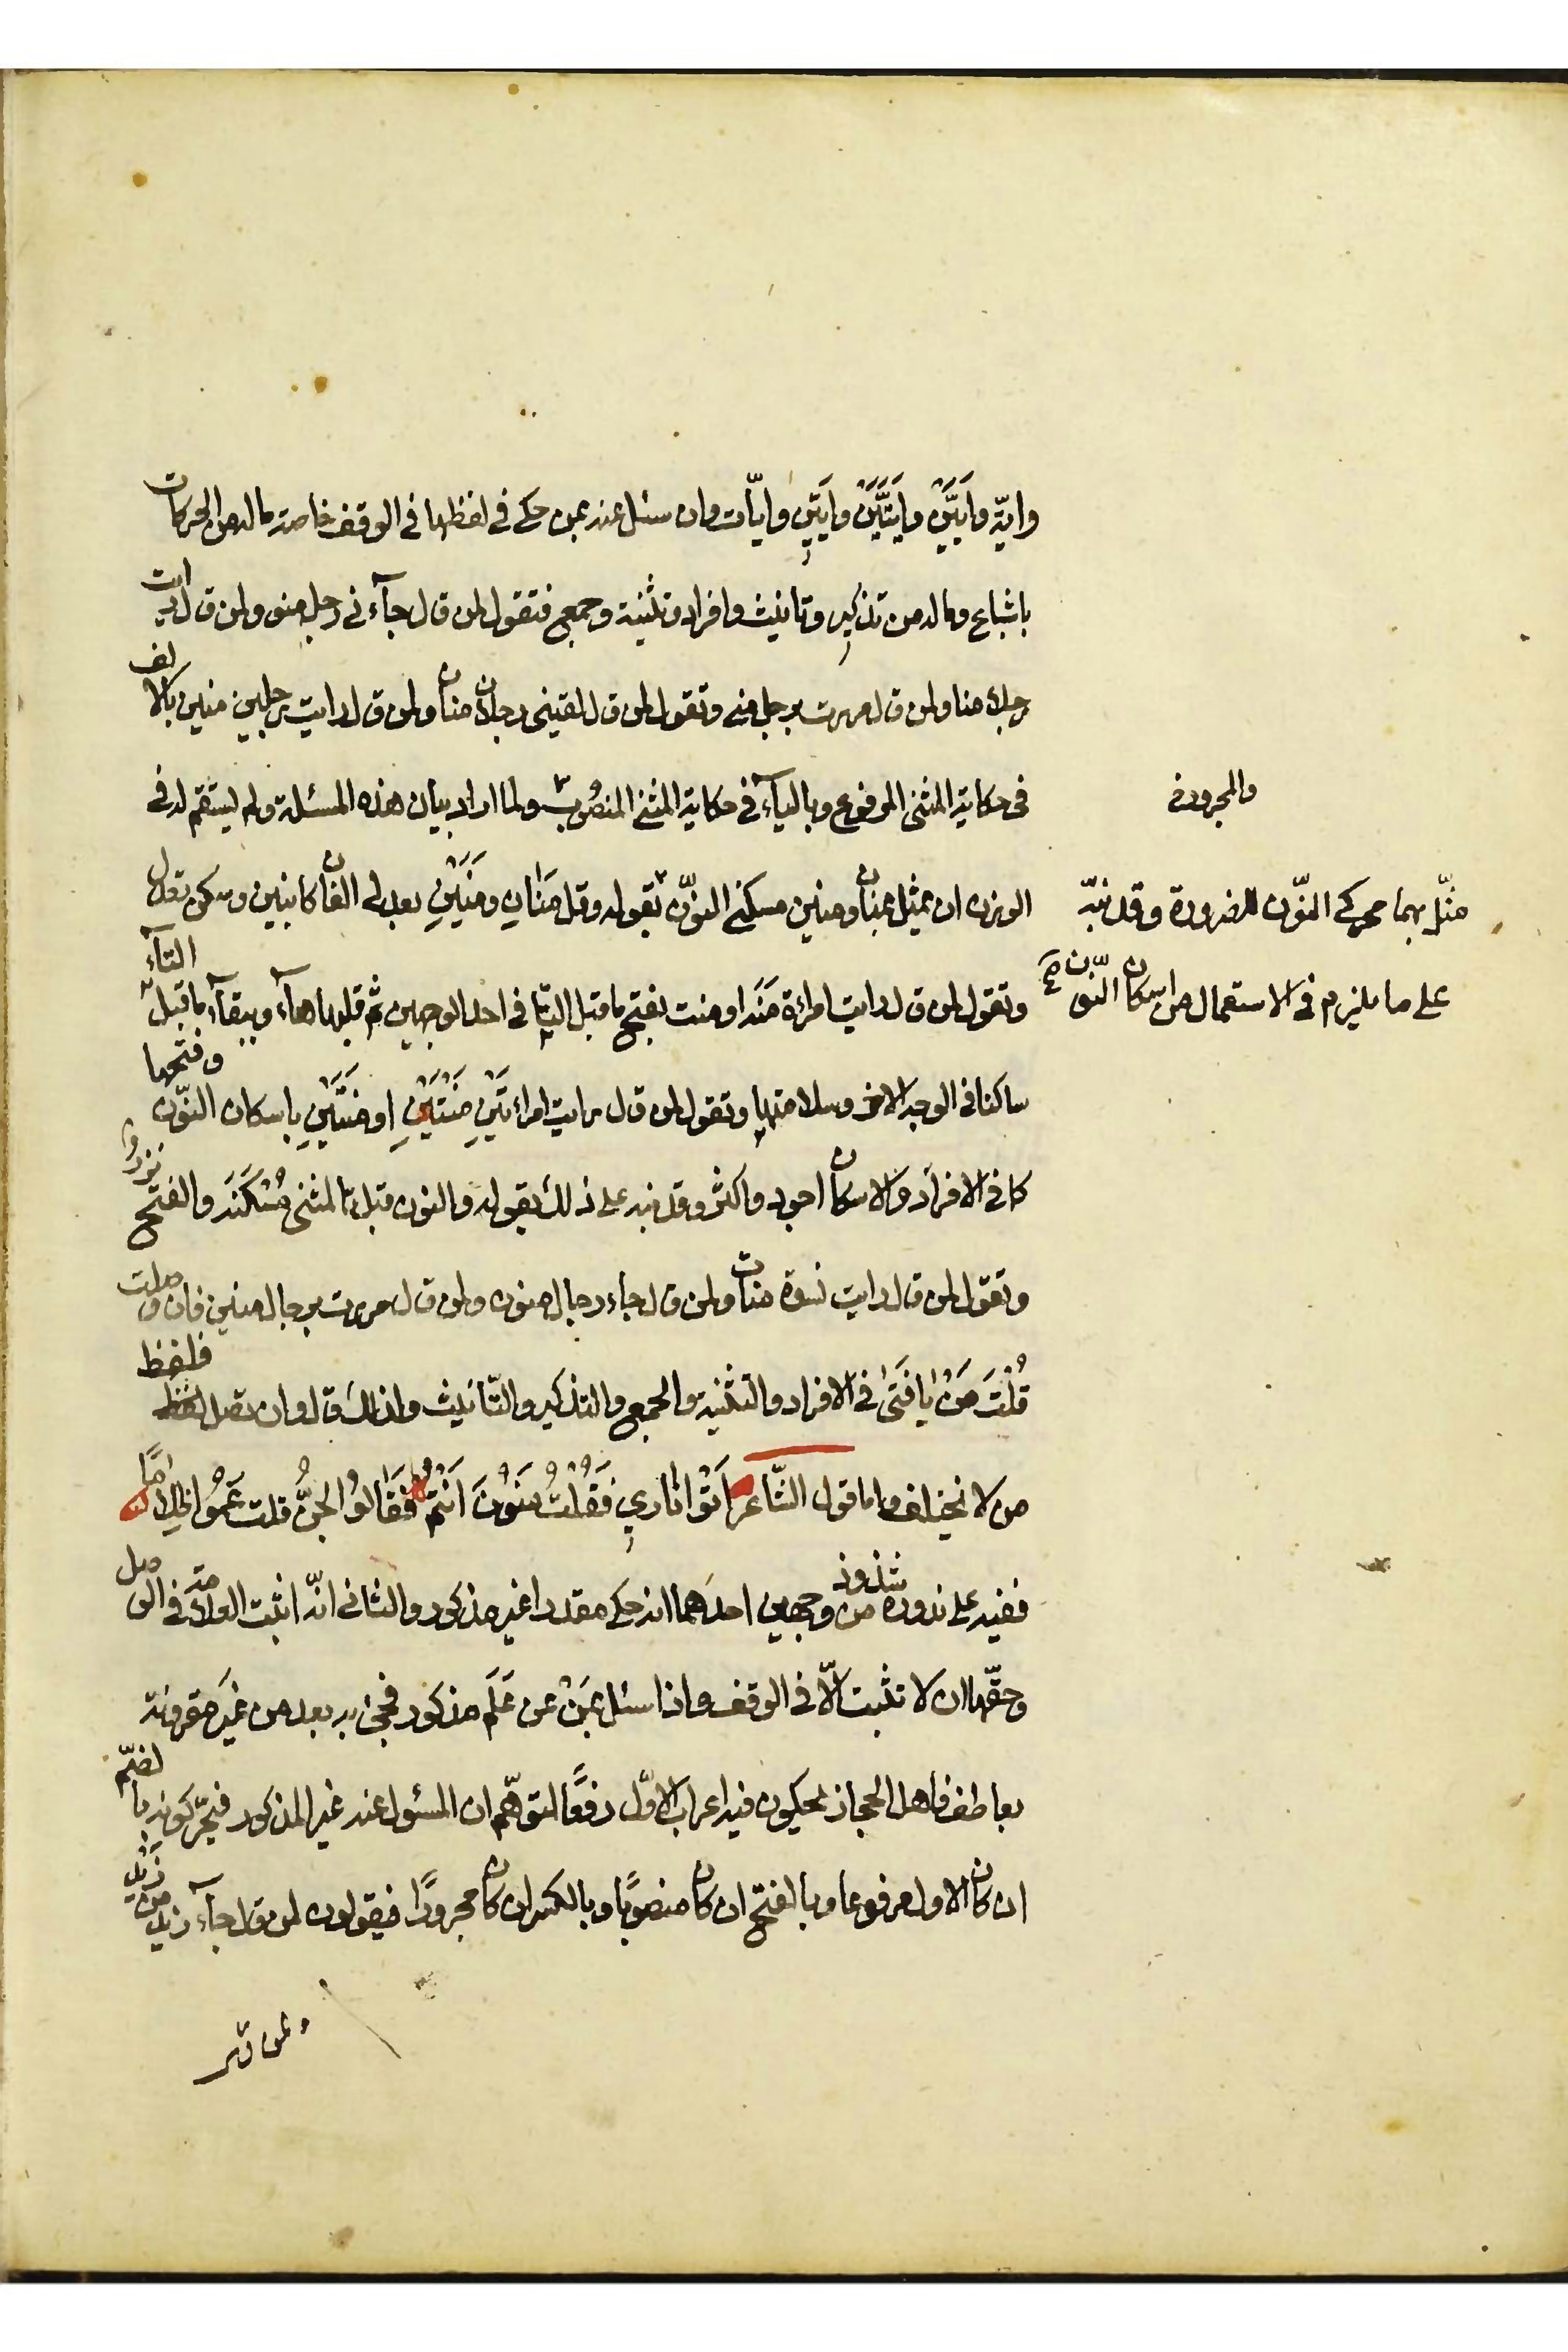 وايّة وأَيَّيْنَ وأَيَّتَيْنِ وأيّين وايّات وان سئل عنه بمن حكى فى لفظها فى الوقف خاصة ماله من الحركات
باشباع وماله من تذكير وتانيث وافراد وتثنية وجمع فتقول لمن قال جآءنى رجل منو ولمن قال رايت
رجلا منا ولمن قال مررت برجل منى وتقول لمن قال لقينى رجلان منان ولمن قال رايت رجلين منين بالالف
فى حكاية المثنى المرفوع وبالياء فى حكاية المثنى المنصوب ولما اراد بيان هذه المسئلة ولم يستقم له فى
والمجرور
الوزن ان يمثل بمنان ومنين مسكنى النّون بقوله وقل مَنَانِ ومَنَيْنِ بعد لى الفان كابنين وسكن تعدل
مثّل بهما محركى النّون للضرورة وقد نبّه
على ما يلزم فى الاستعمال من اسكان النّون صح
وتقول لمن قال رايت امراة مَنَه او منت بفتح ما قبل التا فى احد الوجهين ثم قلبها هآء وببقآء ما قبل التآء
ساكنا فى الوجه الاخر وسلامتها وتقول لمن قال رايت امراءتَيْنِ مَنْتَيْنِ او مَنَتَيْنِ باسكان النّون وفتحها
كما فى الافراد والاسكان اجود واكثر وقد نبه على ذلك بقوله والنون قبل تا المثنى مُسْكَنَه والفتح نزر و
وتقول لمن قال رايت نسوة منات ولمن قال جاء رجال منون ولمن قال مررت برجال منين فان وصلت
قُلْتَ مَنْ يا فَتَى فى الافراد والتثنية والجمع والتذكير والتّانيث ولذلك قال وان تصل فلفظ
من لا يختلف واما قول الشّاعر اَتَوْا نارِي فَقُلْتُ مَنُونَ اَنْتُمْ فَقَالُوا الجِنُّ قلت عِمُوا ظلاما
ففيه على ندوره شذوذ من وجهين احدهما انه حكى مقدرا غير مذكور والثانى انّه اثبت العلامة فى الوصل
وحقّها ان لا تثبت الّا فى الوقف واذا سئل بِمَنْ عن عَلَم مذكور فجىء به بعد من غيرَ مقرونة
بعاطف فاهل الحجاز يحكون فيه اعراب الاوّل رفعًا لتوهّم ان المسئول عنه غير المذكور فيحرّكونه بالضّم
ان كان الاول مرفوعا وبالفتح ان كان منصوبًا وبالكسر ان كان مجرورًا فيقولون لمن قال جآء زيد من زَيْدٌ
ولمن قال